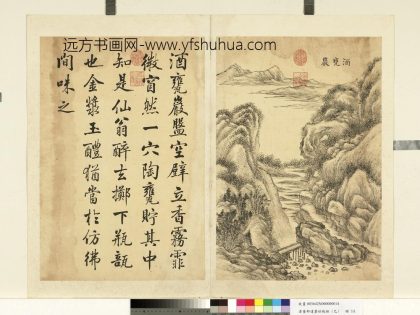 远方书画网-www.yfshuhua.com
酒甕巖
酒甕巖盬空壁立香霧霏
微窅然一穴陶甕貯其中
知是仙翁醉玄擲下瓶瓿
也金漿玉醴猶當於仿彿
間味之